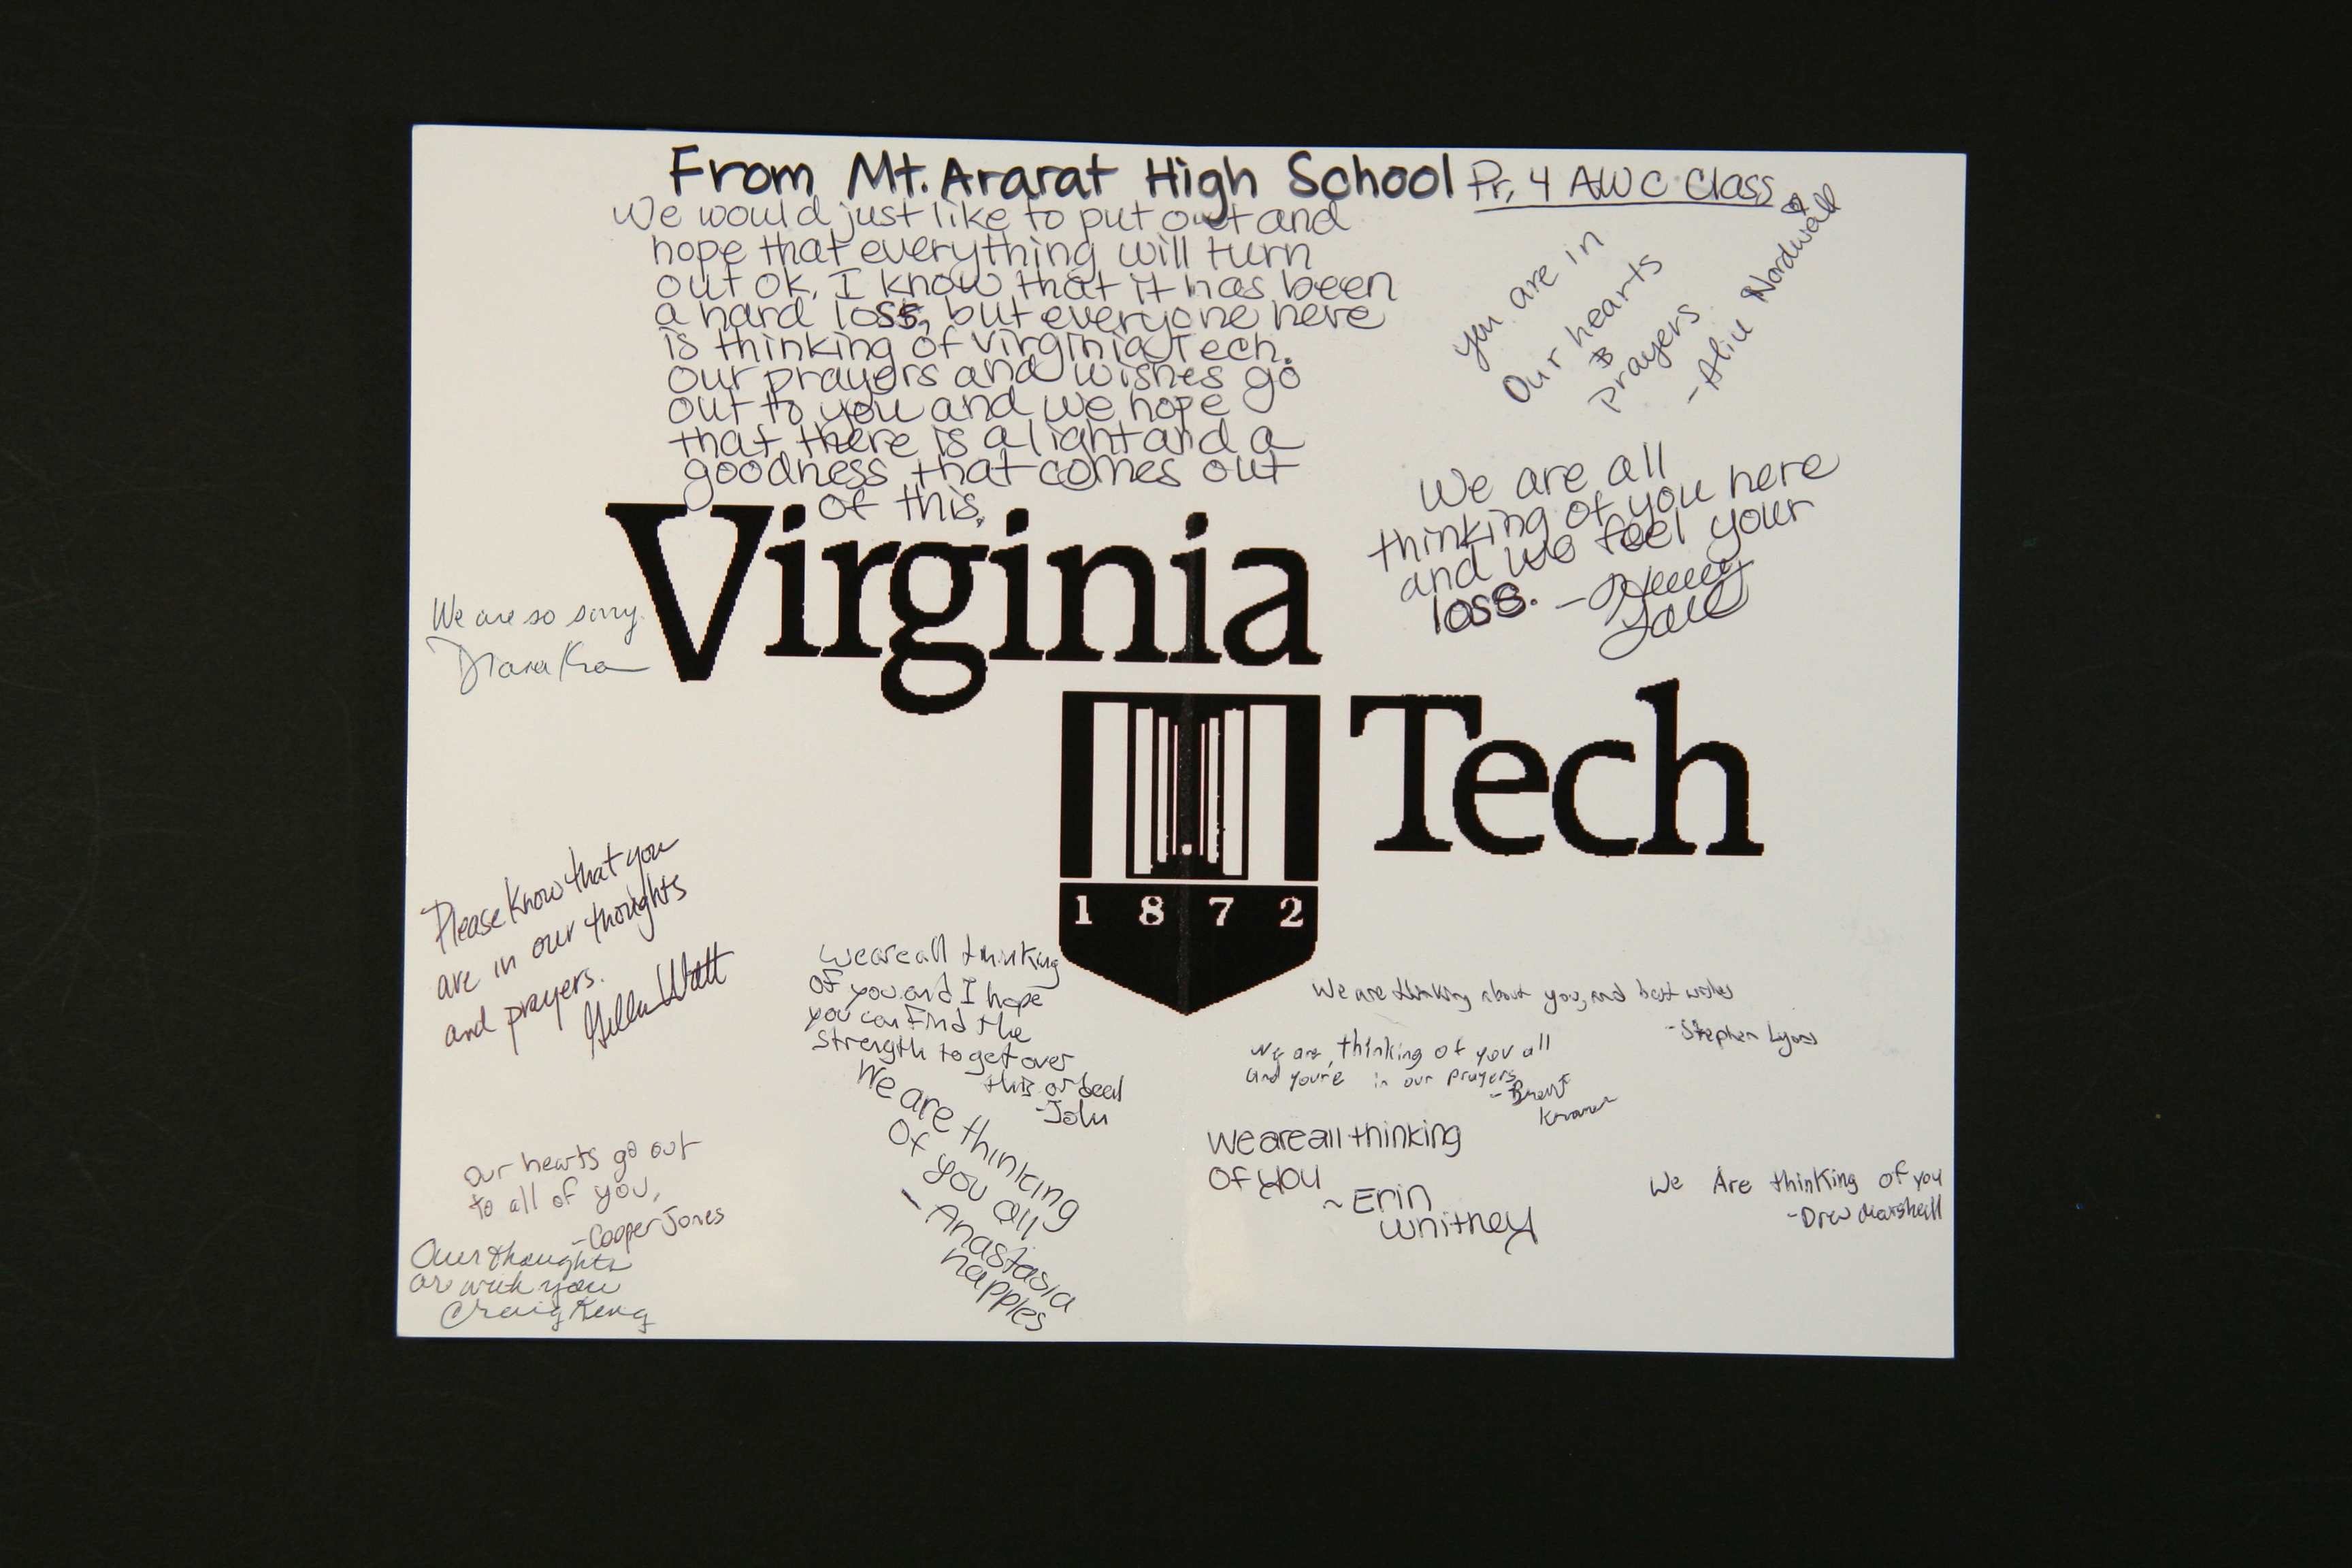 From Mt. Ararat High School Pr, 4 AWC Class
We would just like to put out and
hope that everything will turn
out ok. I know that it has been
a hard loss, but everyone here
is thinking of virginia Tech.
our prayers and wishes go
out to you and we hope
that there is a light and a
goodness that comes out
of this.
you are in
Our hearts
&
prayers
Nordwall
We are all
thinking of you here
and we feel your
loss.
Virginia
Tech
1872
We are so sorry.
Please Know that you
are in our thoughts
and prayers.
Watt
Our hearts go out
to all of you,
-Cooper Jones
Our thoughts
are with you
Craig King
we are all thinking
of you and I hope
you can find the
strength to get over
this or deel
-John
We are thinking
Of you all
- Anastasia
napples
We are thinking about you, and best wishes
-Stephen Lyons
We are thinking of you all
and you're in our prayers
-Brent
Kramer
We are all thinking
of you
~Erin
Whitney
We Are thinking of you
-Drew Marshall